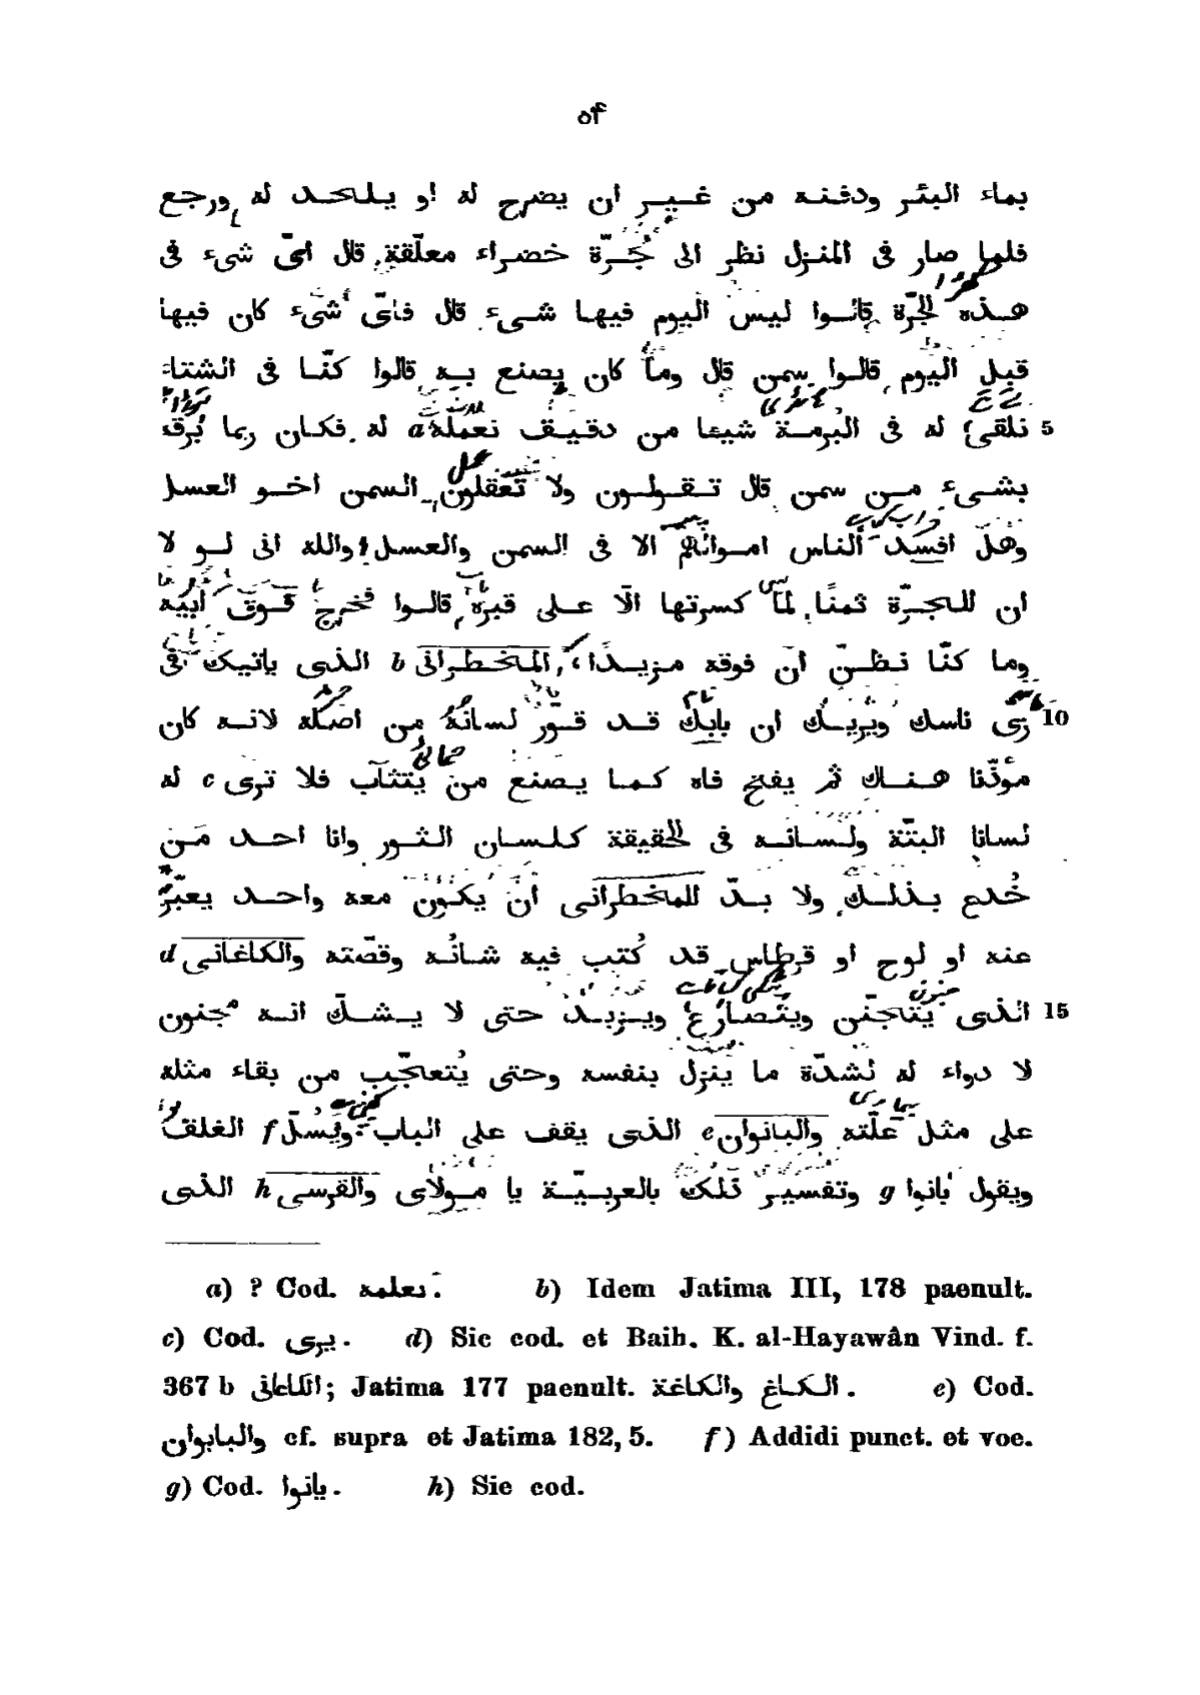 ٥۴
بماء البئر ودفنه من غير ان يضرح له او يلحد له ورجع
فلما صار فى المنزل نظر الى جُرّة خضراء معلّقة قال اىّ شىء فى
هذه الجرّة قالوا ليس اليوم فيها شىء قال فاىّ شىء كان فيها
قبل اليوم قالوا سمن قال وما كان يصنع به قالوا كنّا فى الشتاء
نلقى له فى البرمة شيئا من دقيق نعمله a له فكان ربما بُرّقه 5
بشىء من سمن قال تقولون ولا تعقلون السمن اخو العسل
وهل افسد الناس اموالهم الا فى السمن والعسل والله انى لو لا
ان للجرّة ثمنًا لما كسرتها الّا على قبره قالوا فخرج فوق ابيه
وما كنّا نظنّ ان فوقه مزيدًا، المخطرانى b الذى ياتيك فى
زىّ ناسك ويريك ان بابك قد قوّر لسانه من اصله لانه كان 10
مؤذّنا هناك ثم يفتح فاه كما يصنع من يتثآب فلا ترى c له
لسانا البتّة ولسانه فى الحقيقة كلسان الثور وانا احد من
خُدع بذلك ولا بدّ للمخطرانى ان يكون معه واحد يعبّر
عنه او لوح او قرطاس قد كُتب فيه شانُه وقصّته والكاغانى d
الذى يتاجنّن ويتصارع ويزبد حتى لا يشكّ انه مجنون 15
لا دواء له لشدّة ما ينزل بنفسه وحتى يُتعاجّب من بقاء مثله
على مثل علّته والبانوان e الذى يقف على الباب ويَسُلّ f الغلق
ويقول بانوا g وتفسير ذلك بالعربيّة يا مولاى والقرسى h الذى
a) ? Cod. نعلمه. b) Idem Jatima III, 178 paenult.
c) Cod. يرى. d) Sic cod. et Baih. K. al-Hayawân Vind. f.
367 b الكاعانى; Jatima 177 paenult. الكاغ والكاغة. e) Cod.
والبابوان cf. supra et Jatima 182, 5. f) Addidi punct. et voc.
g) Cod. يانوا. h) Sic cod.